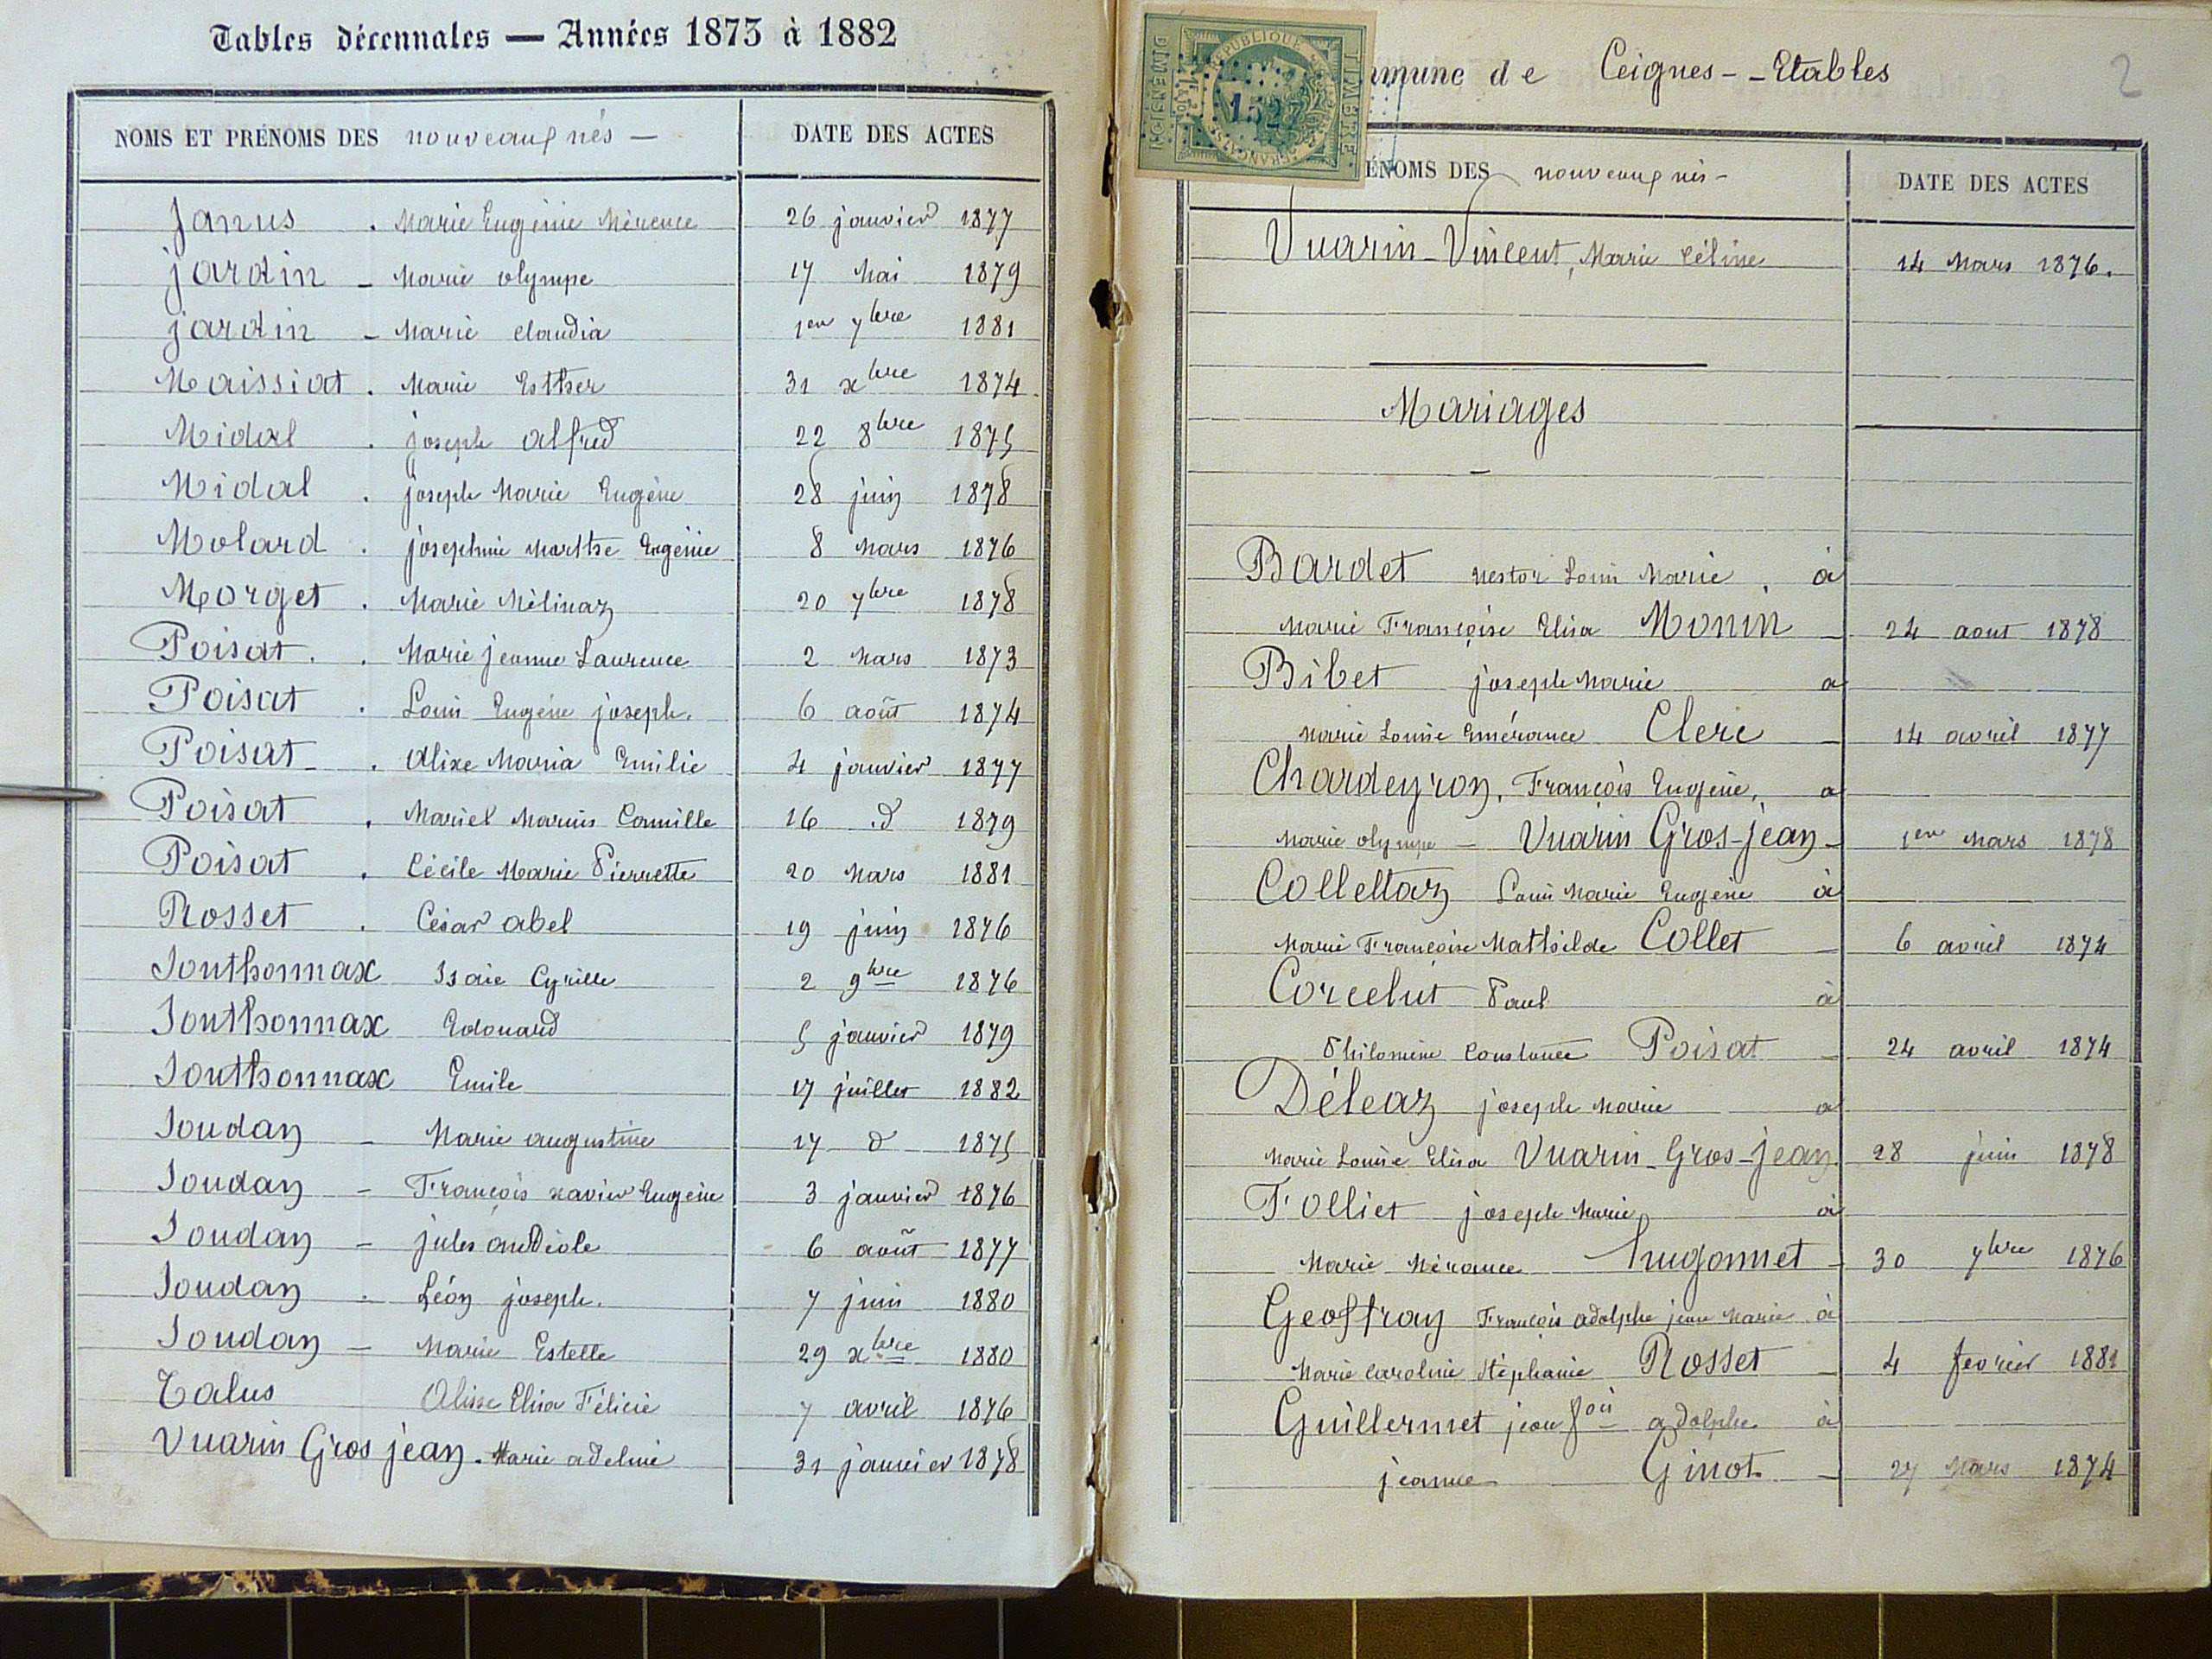 Tables décennales — Années 1873 à 1882
NOMS ET PRÉNOMS DES nouveaux nés — DATE DES ACTES
Janus . Marie Eugénie Mérence 26 janvier 1877
jardin - Marie olympe 17 Mai 1879
jardin - Marie claudia 1er 7bre 1881
Maissiat . Marie Esther 31 xbre 1874
Midal . joseph alfred 22 8bre 1875
Midal . joseph Marie Eugène 28 juin 1878
Molard . joséphine Marthe Eugénie 8 Mars 1876
Morget . Marie Mélinaz 20 7bre 1878
Poisat . . Marie jeanne Laurence 2 Mars 1873
Poisat . Louis Eugène joseph. 6 août 1874
Poisat - . Alixe Maria Emilie 4 janvier 1877
Poisat . Mariel Marius Camille 16 d 1879
Poisat . Cécile Marie Pierrette 20 Mars 1881
Rosset . César abel 19 juin 1876
Sonthonnax Isaie Cyrille 2 9bre 1876
Sonthonnax Edouard 5 janvier 1879
Sonthonnax Emile 17 juillet 1882
Soudan - Marie augustine 17 d 1875
Soudan - François xavier Eugène 3 janvier 1876
Soudan - jules andéole 6 août 1877
Soudan . Léon joseph. 7 juin 1880
Soudan - Marie Estelle 29 xbre 1880
Talus Alixe Elisa Félicie 7 avril 1876
Vuarin Gros jean . Marie adeline 31 janvier 1878
TIMBRE
DIMENSION
RÉPUBLIQUE FRANÇAISE
mmune de Ceignes - - Etables
2
ÉNOMS DES nouveaux nés - DATE DES ACTES
Vuarin - Vincent, Marie Céline 14 Mars 1876.
Mariages
-
Bardet nestor Louis Marie . à
Marie Françoise Elisa Monin - 24 aout 1878
Bibet joseph Marie a
Marie Louise Emérance Clerc - 14 avril 1877
Chardeyron, François Eugène, a
Marie olympe - Vuarin Gros-jean - 1er Mars 1878
Collettaz Louis Marie Eugène à
Marie Françoise Mathilde Collet - 6 avril 1874
Corcelut Paul à
Philomène Constance Poisat - 24 avril 1874
Déléaz joseph Marie a
Marie Louise Elisa Vuarin - Gros - jean 28 juin 1878
Folliet joseph Marie à
Marie Mérance hugonnet - 30 7bre 1876
Geoffray François adolphe jean Marie à
Marie Caroline Stéphanie Rosset - 4 fevrier 1881
Guillermet jean fois adolphe à
jeanne Ginot - 27 Mars 1874